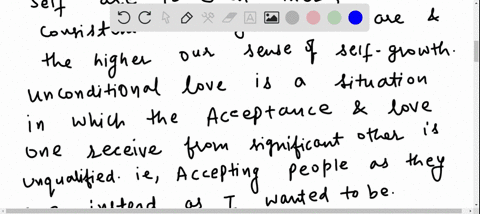 self
consisten are &
the higher our sense of self-growth.
Unconditional love is a situation
in which the Acceptance & love
one receive from significant other is
unqualified. ie, Accepting people as they
instead as I wanted to be.